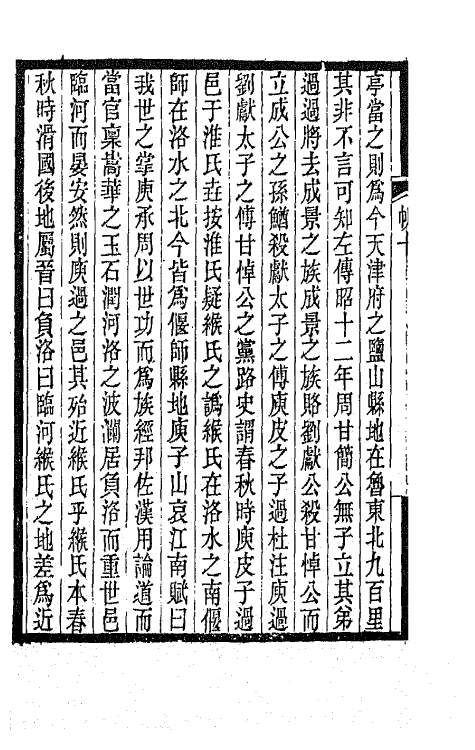 亭當之則爲今天津府之鹽山縣地在魯東北九百里
其非不言可知左傳昭十二年周甘簡公無子立其弟
過過將去成景之族成景之族賂劉獻公殺甘悼公而
立成公之孫鰌殺獻太子之傅庾皮之子過杜注庾過
劉獻太子之傅甘悼公之黨路史謂春秋時庾皮子過
邑于淮氏壵按淮氏疑緱氏之譌緱氏在洛水之南偃
師在洛水之北今皆爲偃師縣地庾子山哀江南賦曰
我世之掌庾承周以世功而爲族經邦佐漢用論道而
當官稟嵩華之玉石潤河洛之波瀾居負洛而重世邑
臨河而晏安然則庾過之邑其殆近緱氏乎緱氏本春
秋時滑國後地屬晉曰負洛曰臨河緱氏之地差爲近